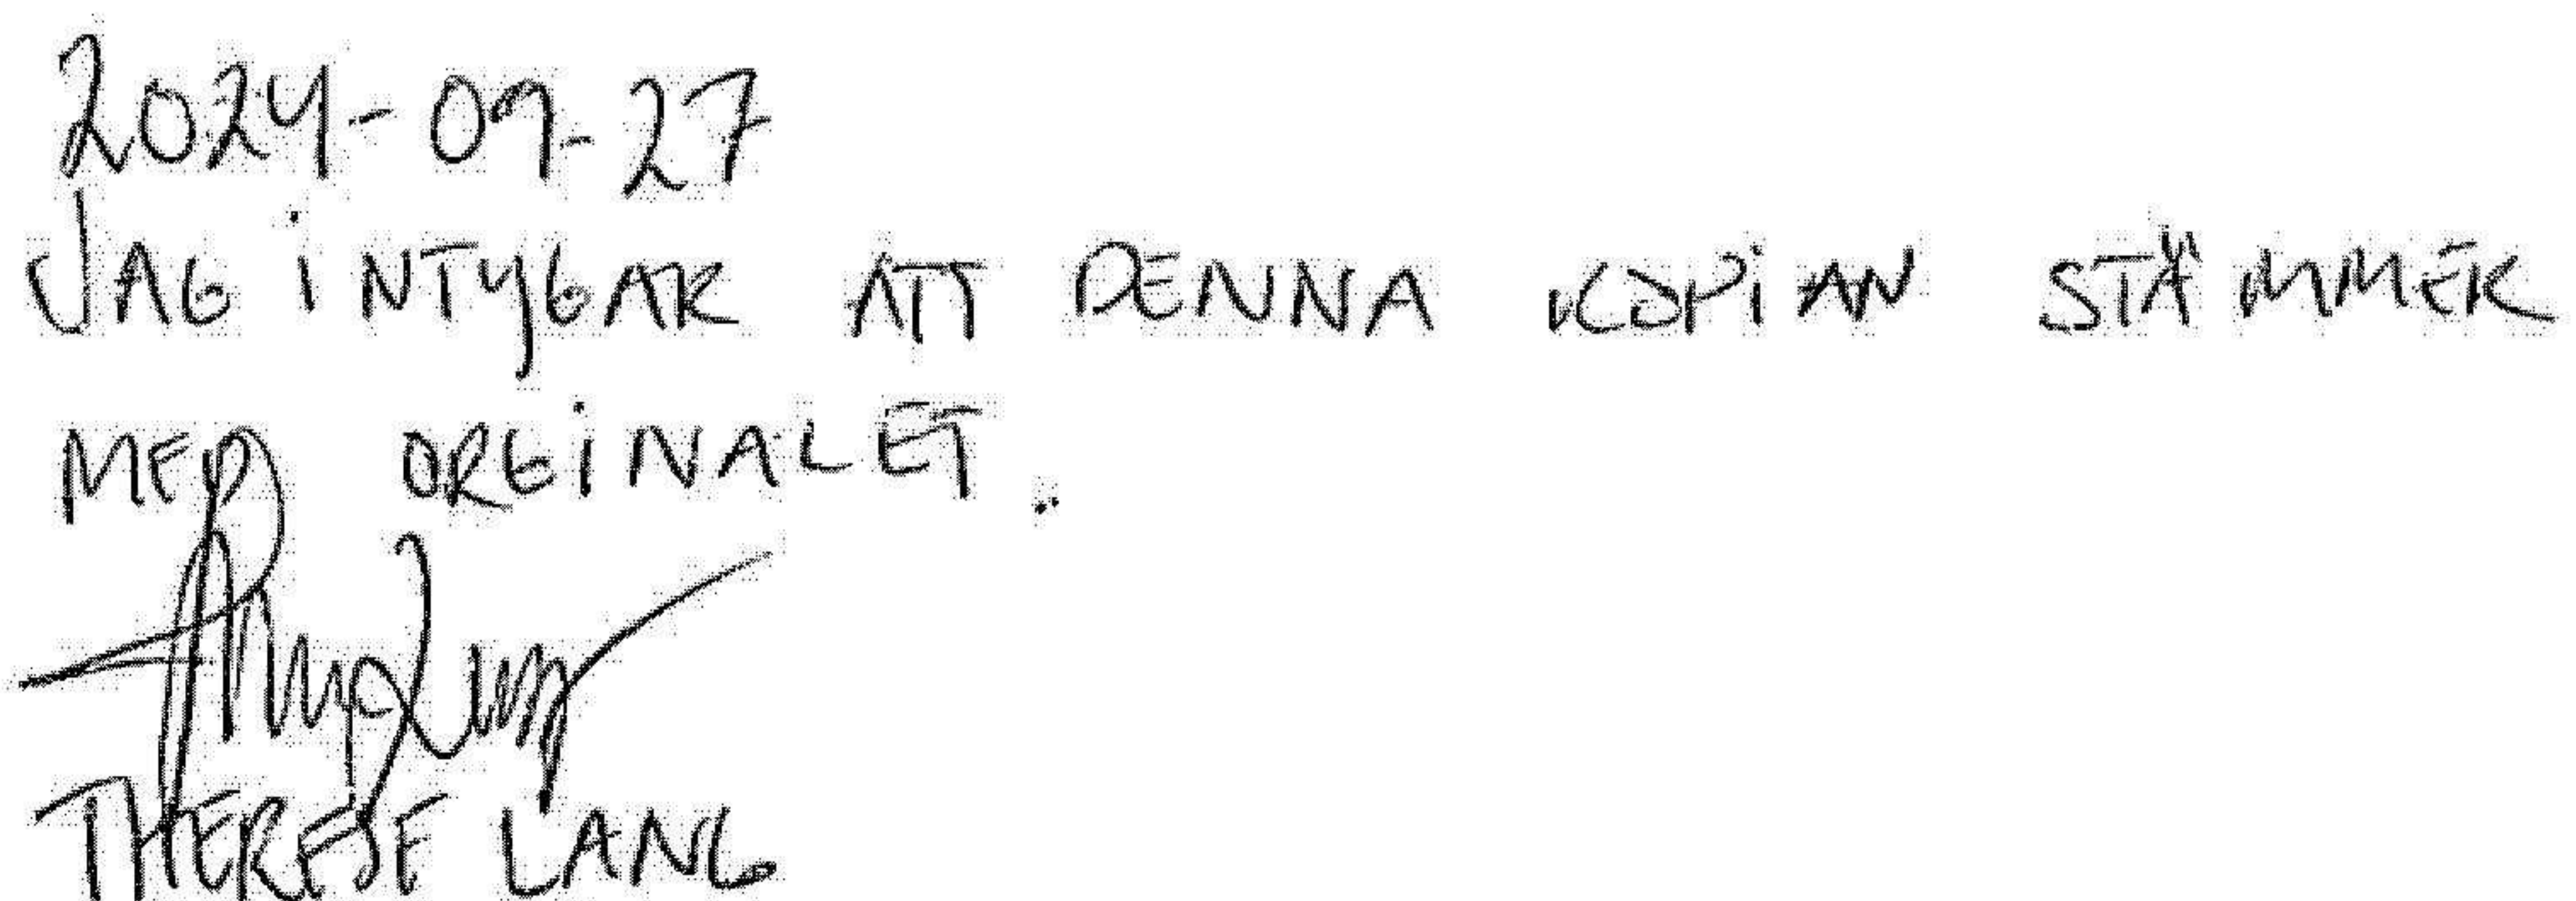 2024-09-27
JAG INTYGAR ATT DENNA KOPIAN STÄMMER
MED ORGINALET.
THERESE LANG